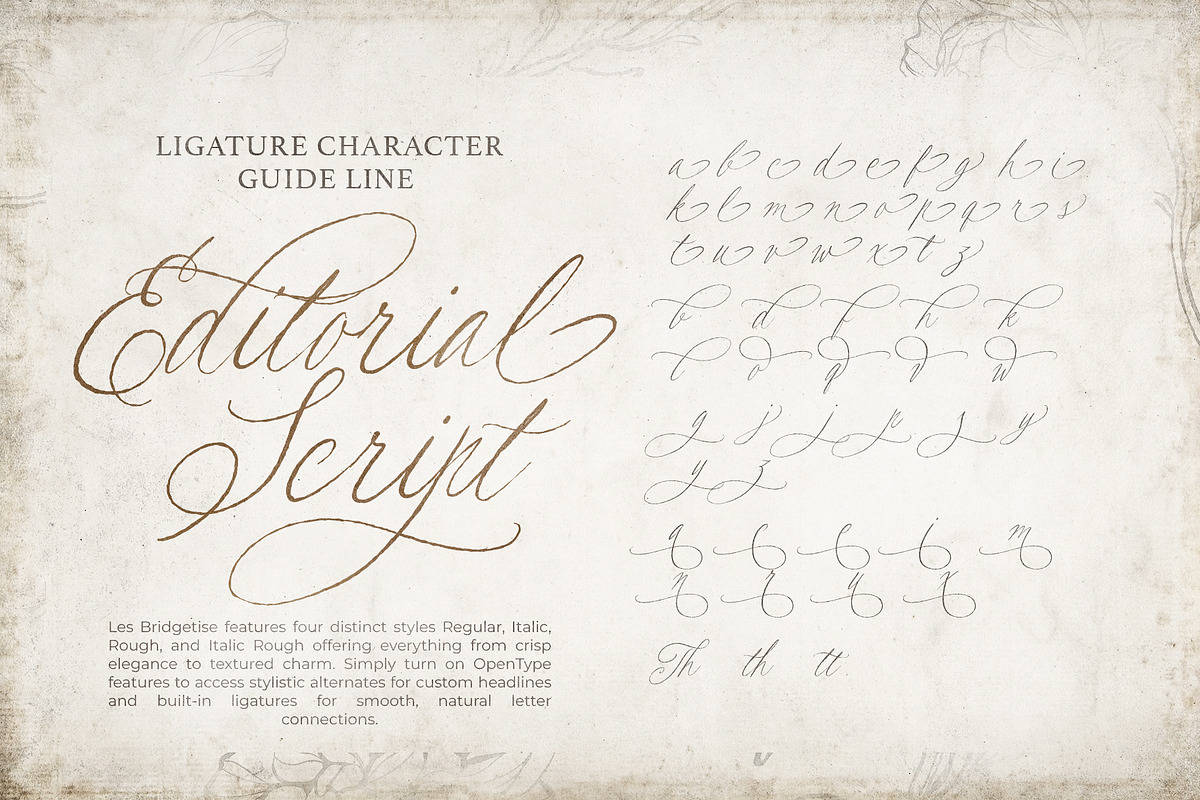 LIGATURE CHARACTER
GUIDE LINE
Editorial
Script
Les Bridgetise features four distinct styles Regular, Italic,
Rough, and Italic Rough offering everything from crisp
elegance to textured charm. Simply turn on OpenType
features to access stylistic alternates for custom headlines
and built-in ligatures for smooth, natural letter
connections.
a b c d e f g h i
k l m n o p q r s
t u v w x t z
b d f h k
l o q v w
g j j p s y
y z
m
n r u x
Th th tt